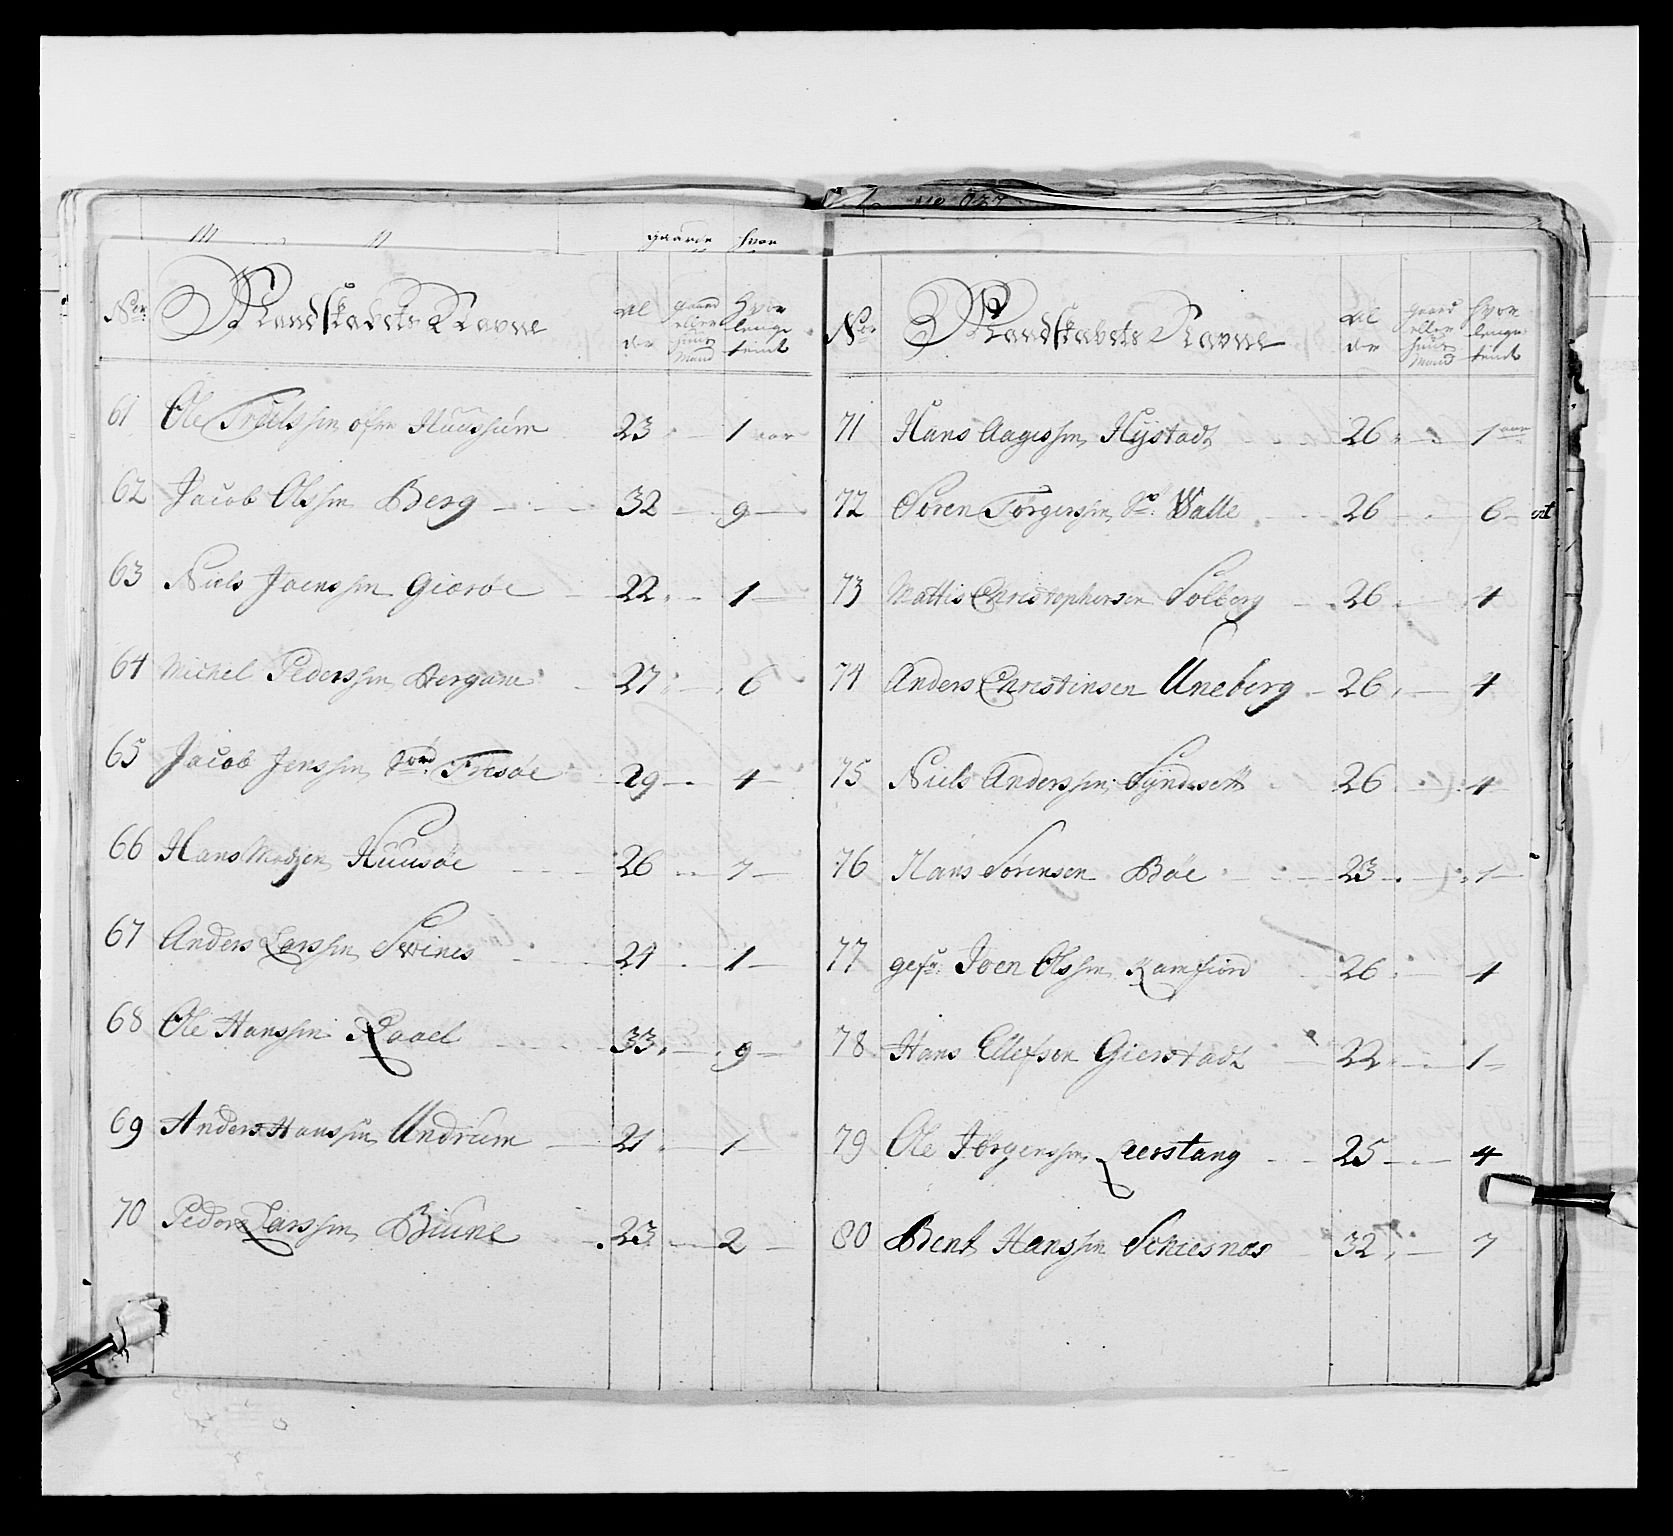 gaard hvor
No Mandskabets Navne Al der gaard eller huus Mand hvor lenge tient
61 Ole Truelssen Huussum 23 - 1 aar
62 Jacob Olssen Berg 32 - 9
63 Niels Joenssen Gieroe 22 - 1
64 Michel Pederssen Bergane 27 - 6
65 Jacob Jenssen Nord Fresøe 29 - 4
66 Hans Madzen Huusøe 26 - 7
67 Anders Larssen Svines 24 - 1
68 Ole Hanssen Raael 33 - 9
69 Anders Hanssen Undrum 21 - 1
70 Peder Larssen Biune 23 - 2
No Mandskabets Navne Al der gaard eller huus Mand hvor lenge tient
71 Hans Aagessen Hystadt 26 - 1 aar
72 Søren Torgerssen Walle 26 - 6
73 Mattis Christophersen Solberg 26 - 4
74 Anders Christensen Uneberg 26 - 4
75 Niels Anderssen Syndsett 26 - 4
76 Hans Sørensen Bøe 23 - 1
77 gefr: Joen Olssen Kamfiord 26 - 4
78 Hans Ellefsen Gierstadt 22 - 1
79 Ole Jørgenssen Aerstang 25 - 4
80 Bent Hanssen Schiesnas 32 - 7